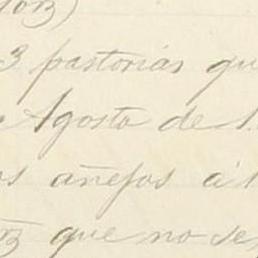 3 pastorias qu
Agosto de 1
os añejos á l
que no se